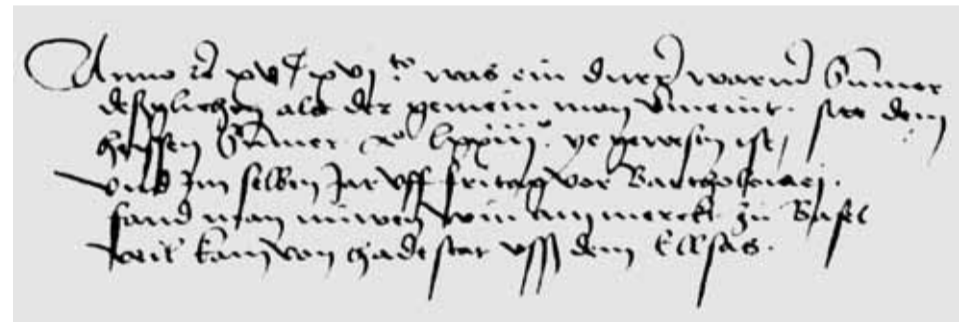 Anno etc xvc xvj to was ein durer warmer Summer
desglichen als der gemein man vermeint. syt dem
heyssen Summer etc lxxiiij. ye gewesen ist,
vnd Im selben Jar vff fritag vor Bartholomei.
fand man nuwen win am merckt zu Basel
kam von hadtstat vsß dem Ellsas.